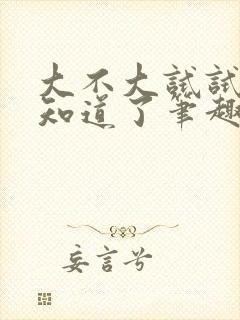 大不大试试
知道了笔趣
妄言兮